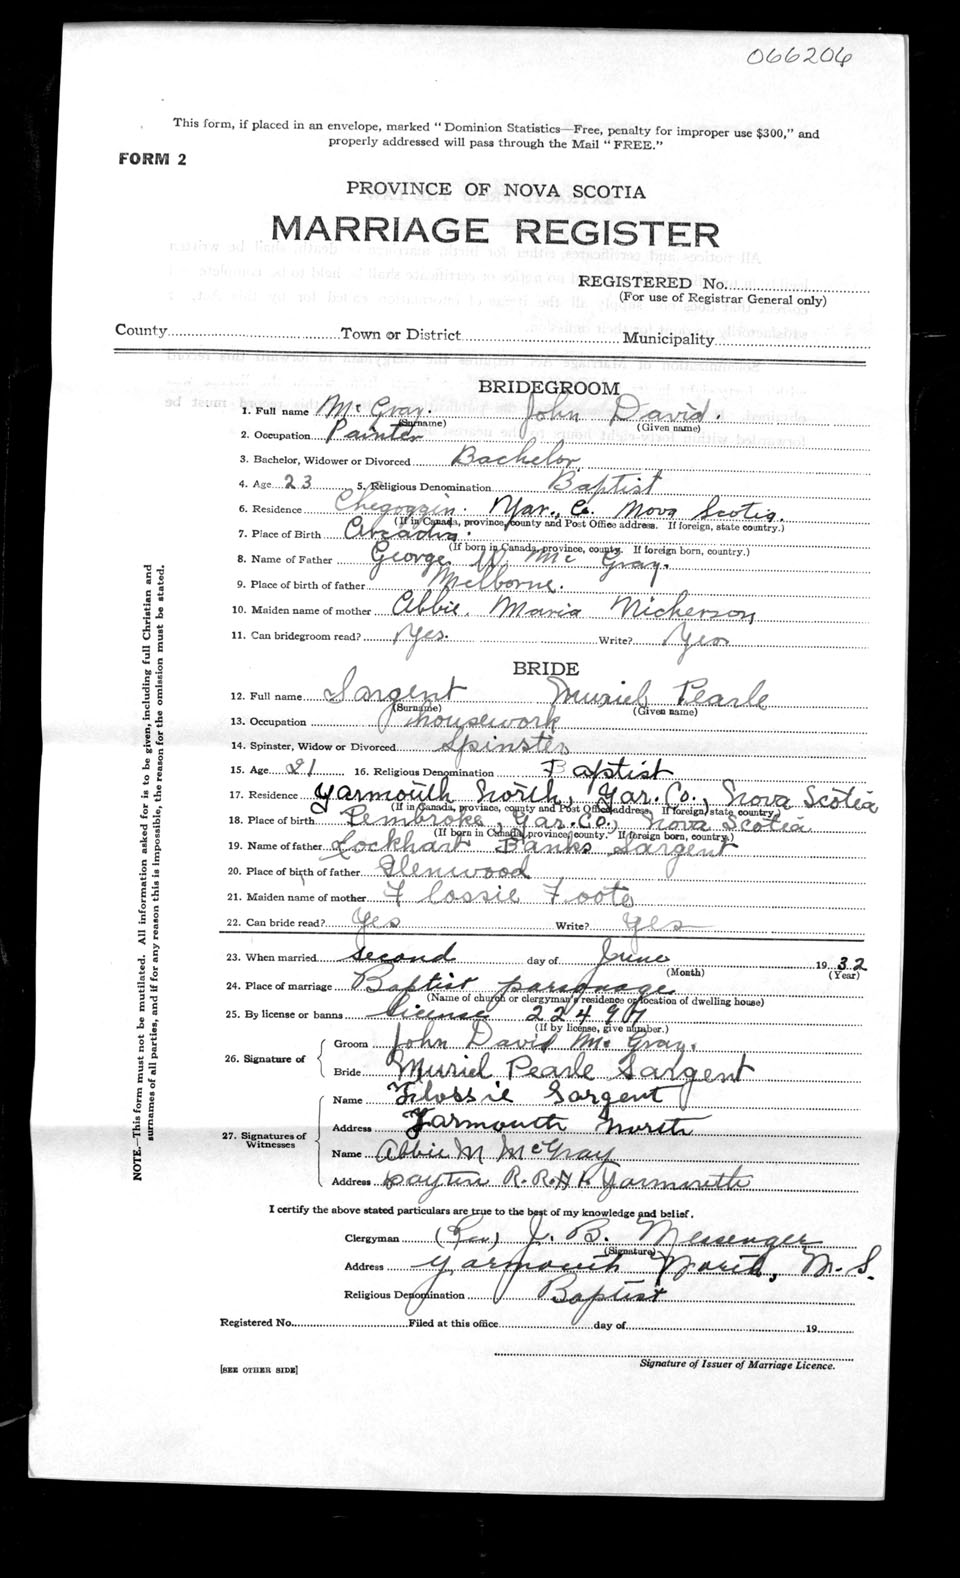 066206
This form, if placed in an envelope, marked "Dominion Statistics—Free, penalty for improper use $300," and
properly addressed will pass through the Mail "FREE."
FORM 2
PROVINCE OF NOVA SCOTIA
MARRIAGE REGISTER
REGISTERED No.
(For use of Registrar General only)
County Town or District Municipality
BRIDEGROOM
1. Full name McGray. John David.
(Surname) (Given name)
2. Occupation Painter
3. Bachelor, Widower or Divorced Bachelor.
4. Age 23 5. Religious Denomination Baptist
6. Residence Chegoggin. Yar. Co. Nova Scotia.
(If in Canada, province, county and Post Office address. If foreign, state country.)
7. Place of Birth Arcadia.
(If born in Canada, province, county. If foreign born, country.)
8. Name of Father George W McGray.
9. Place of birth of father Melborne.
10. Maiden name of mother Abbie. Maria Nickerson
11. Can bridegroom read? Yes. Write? Yes
BRIDE
12. Full name Sargent Muriel Pearle
(Surname) (Given name)
13. Occupation housework
14. Spinster, Widow or Divorced Spinster
15. Age 21 16. Religious Denomination Baptist
17. Residence Yarmouth North, Yar. Co., Nova Scotia
(If in Canada, province, county and Post Office address. If foreign, state country.)
18. Place of birth Pembroke, Yar. Co., Nova Scotia
(If born in Canada, province, county. If foreign born, country.)
19. Name of father Lockhart Banks Sargent
20. Place of birth of father Glenwood
21. Maiden name of mother Flossie Foote
22. Can bride read? Yes Write? Yes
23. When married second day of June 1932
(Month) (Year)
24. Place of marriage Baptist parsonage
(Name of church or clergyman's residence or location of dwelling house)
25. By license or banns License 22497
(If by license, give number.)
26. Signature of Groom John David McGray.
Bride Muriel Pearle Sargent
27. Signatures of Witnesses Name Flossie Sargent
Address Yarmouth North
Name Abbie M McGray
Address R.R. Yarmouth
I certify the above stated particulars are true to the best of my knowledge and belief.
Clergyman (Rev) J. B. Messenger
(Signature)
Address Yarmouth North, N.S.
Religious Denomination Baptist
Registered No. Filed at this office day of 19
Signature of Issuer of Marriage Licence.
[SEE OTHER SIDE]
NOTE.—This form must not be mutilated. All information asked for is to be given, including full Christian and
surnames of all parties, and if for any reason this is impossible, the reason for the omission must be stated.